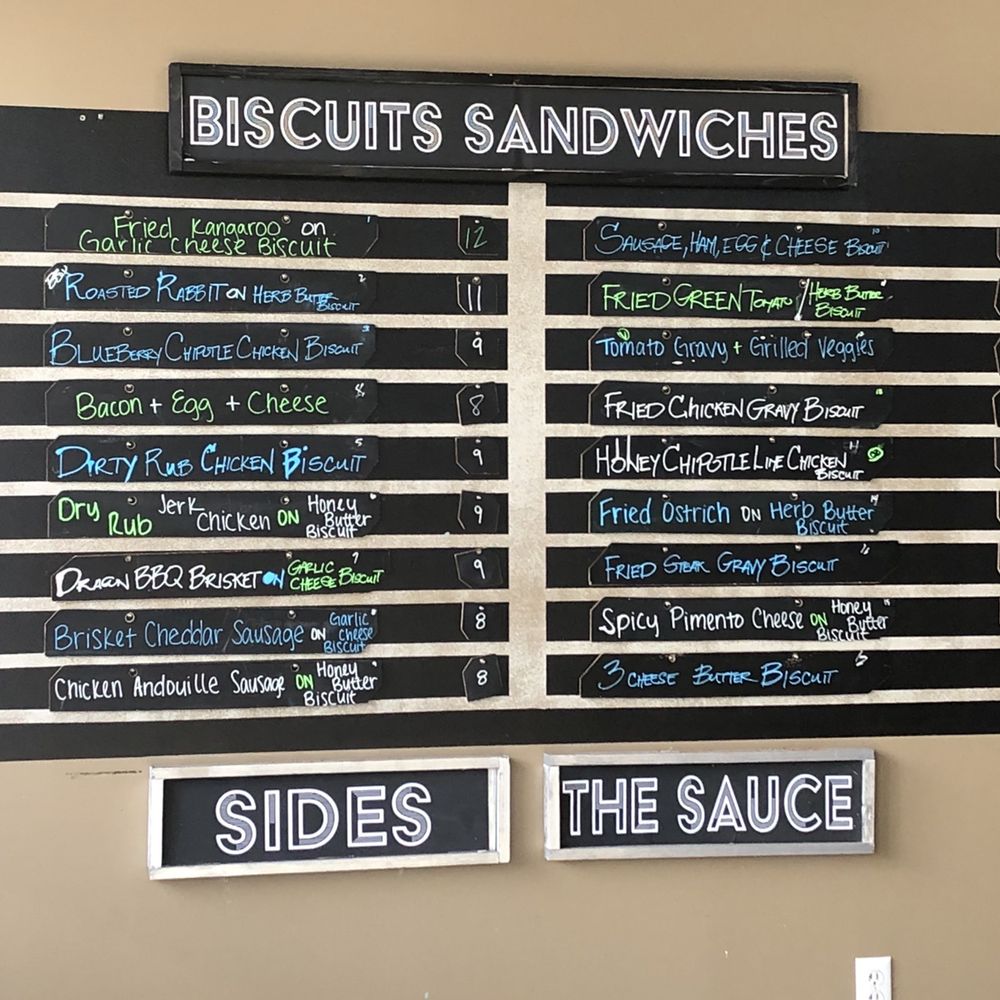 BISCUITS SANDWICHES
Fried Kangaroo on
Garlic Cheese Biscuit
1
12
BBQ ROASTED RABBIT ON HERB BUTTER
BISCUIT
2
11
BLUEBERRY CHIPOTLE CHICKEN BISCUIT
3
9
Bacon + Egg + Cheese
8
DIRTY RUB CHICKEN BISCUIT
5
9
Dry Rub Jerk Chicken ON Honey
Butter
Biscuit
9
DRAGON BBQ BRISKET ON GARLIC
CHEESE BISCUIT
7
9
Brisket Cheddar Sausage ON Garlic
Cheese
Biscuit
8
Chicken Andouille Sausage ON Honey
Butter
Biscuit
8
SAUSAGE, HAM, EGG & CHEESE BISCUIT
FRIED GREEN TOMATO / HERB BUTTER
BISCUIT
Tomato Gravy + Grilled Veggies
FRIED CHICKEN GRAVY BISCUIT
HONEY CHIPOTLE LIME CHICKEN
BISCUIT
Fried Ostrich ON Herb Butter
Biscuit
FRIED STEAK GRAVY BISCUIT
Spicy Pimento Cheese ON Honey
Butter
Biscuit
3 CHEESE BUTTER BISCUIT
SIDES
THE SAUCE